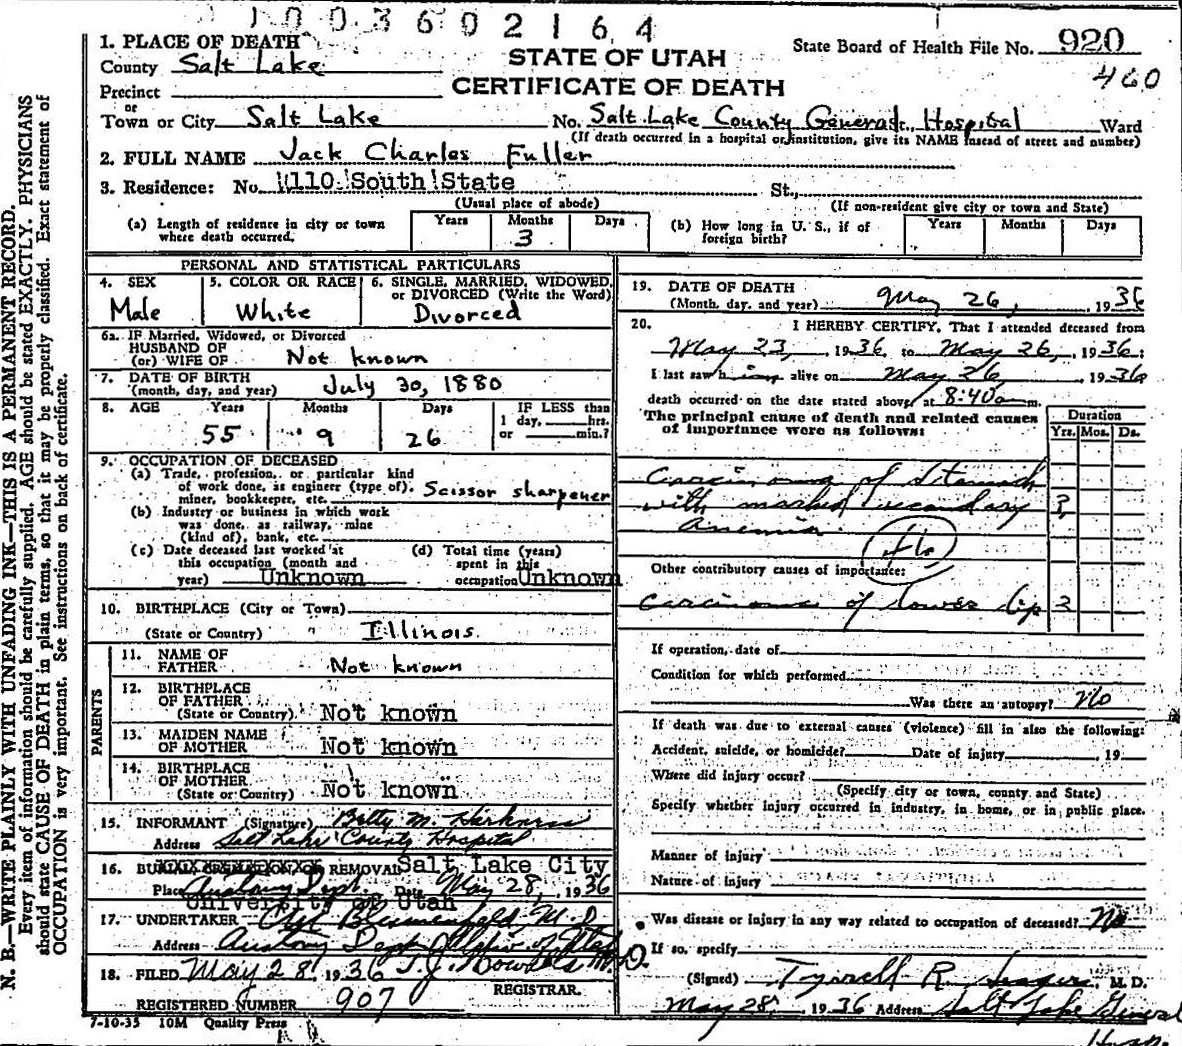 1003602164
1. PLACE OF DEATH
County Salt Lake
STATE OF UTAH
CERTIFICATE OF DEATH
State Board of Health File No. 920
460
Precinct
or
Town or City Salt Lake No. Salt Lake County General St., Hospital Ward
(If death occurred in a hospital or institution, give its NAME instead of street and number)
2. FULL NAME Jack Charles Fuller
3. Residence: No. 1110 South State St.,
(Usual place of abode) (If non-resident give city or town and State)
(a) Length of residence in city or town where death occurred. Years Months 3 Days
(b) How long in U. S., if of foreign birth? Years Months Days
PERSONAL AND STATISTICAL PARTICULARS
4. SEX Male
5. COLOR OR RACE White
6. SINGLE, MARRIED, WIDOWED, or DIVORCED (Write the Word) Divorced
6a. IF Married, Widowed, or Divorced
HUSBAND OF
(or) WIFE OF Not known
7. DATE OF BIRTH
(month, day, and year) July 30, 1880
8. AGE Years 55 Months 9 Days 26 IF LESS than 1 day, hrs. or min.?
9. OCCUPATION OF DECEASED
(a) Trade, profession, or particular kind
of work done, as engineer (type of),
miner, bookkeeper, etc. Scissor sharpener
(b) Industry or business in which work
was done, as railway, mine
(kind of), bank, etc.
(c) Date deceased last worked at
this occupation (month and
year) Unknown
(d) Total time (years)
spent in this
occupation Unknown
10. BIRTHPLACE (City or Town)
(State or Country) Illinois
PARENTS
11. NAME OF
FATHER Not known
12. BIRTHPLACE
OF FATHER
(State or Country) Not known
13. MAIDEN NAME
OF MOTHER Not known
14. BIRTHPLACE
OF MOTHER
(State or Country) Not known
15. INFORMANT (Signature) Betty M. Harkness
Address Salt Lake County Hospital
16. BURIAL, CREMATION OR REMOVAL Salt Lake City
Place Anatomy Dept. Date May 28, 1936
University of Utah
17. UNDERTAKER Blumenfeld, M.D.
Address Anatomy Dept Univ of Utah
18. FILED May 28 1936 T.J. Howells M.D.
REGISTRAR.
REGISTERED NUMBER 907
7-10-35 10M Quality Press
19. DATE OF DEATH
(Month, day, and year) May 26, 1936
20. I HEREBY CERTIFY, That I attended deceased from
May 23, 1936 to May 26, 1936;
I last saw him alive on May 26, 1936
death occurred on the date stated above, at 8:40 a m.
The principal cause of death and related causes
of importance were as follows:
Duration
Yrs. Mos. Ds.
Carcinoma of Stomach
with marked secondary ?
Anemia
46
Other contributory causes of importance:
Carcinoma of lower lip 2
If operation, date of
Condition for which performed
Was there an autopsy? No
If death was due to external causes (violence) fill in also the following:
Accident, suicide, or homicide? Date of injury 19
Where did injury occur?
(Specify city or town, county and State)
Specify whether injury occurred in industry, in home, or in public place.
Manner of injury
Nature of injury
Was disease or injury in any way related to occupation of deceased? No
If so, specify
(Signed) Tyrrell R. M. D.
May 28, 1936 Address Salt Lake General
Hosp.
N. B.—WRITE PLAINLY WITH UNFADING INK—THIS IS A PERMANENT RECORD.
Every item of information should be carefully supplied. AGE should be stated EXACTLY. PHYSICIANS
should state CAUSE OF DEATH in plain terms, so that it may be properly classified. Exact statement of
OCCUPATION is very important. See instructions on back of certificate.